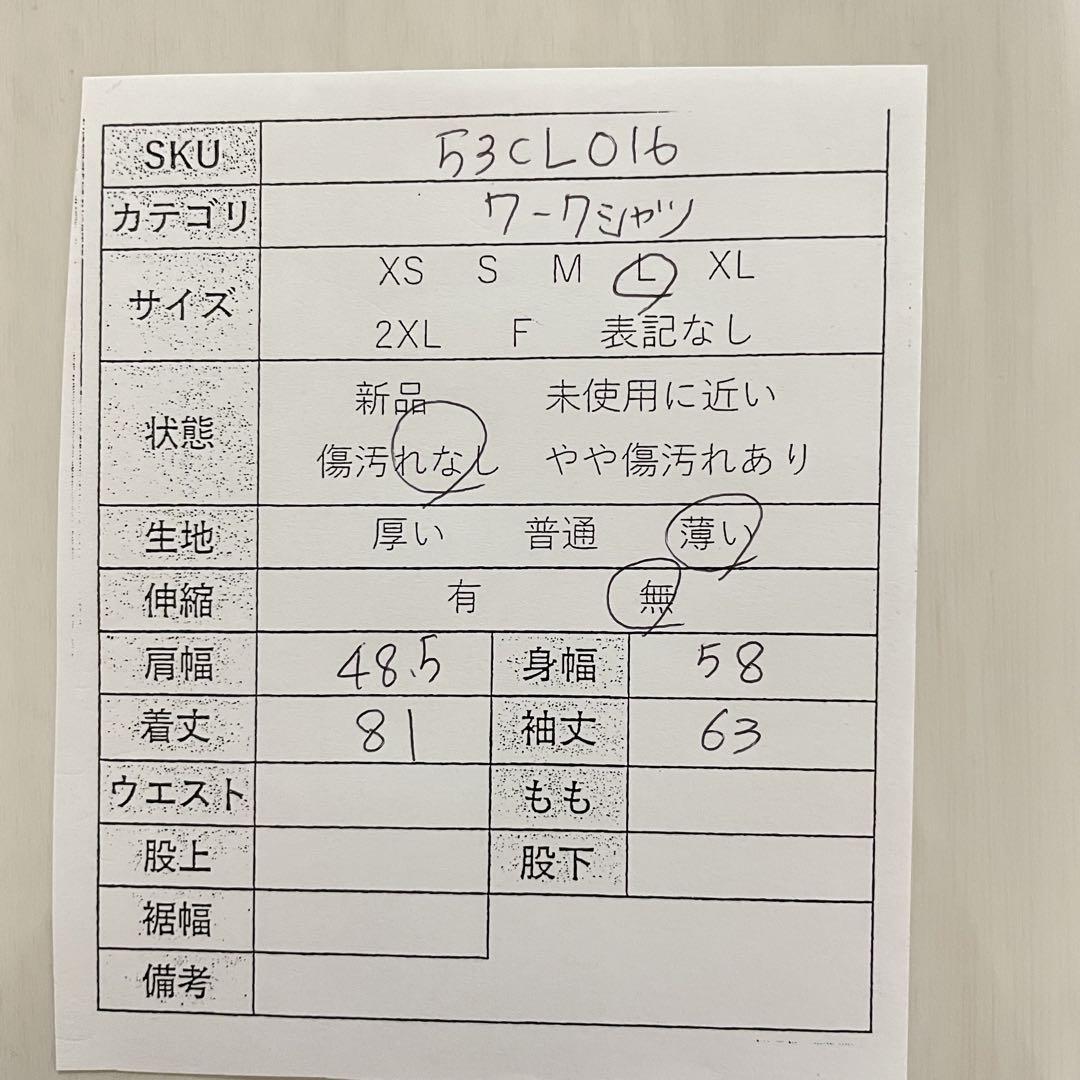 SKU 53CL016
カテゴリ ワークシャツ
サイズ XS S M L XL
2XL F 表記なし
状態 新品 未使用に近い
傷汚れなし やや傷汚れあり
生地 厚い 普通 薄い
伸縮 有 無
肩幅 48.5 身幅 58
着丈 81 袖丈 63
ウエスト もも
股上 股下
裾幅
備考